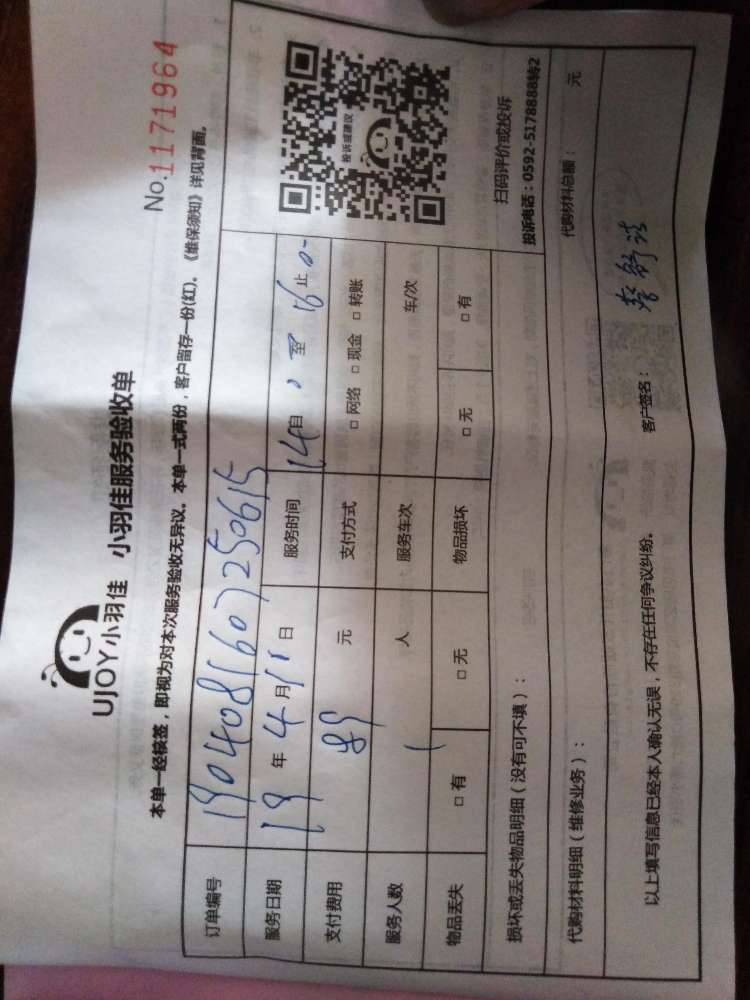 UJOY小羽佳 小羽佳服务验收单
No.1171964
本单一经核签，即视为对本次服务验收无异议。本单一式两份，客户留存一份(红)。《维保须知》详见背面。
订单编号 190408160725 0615
服务日期 19 年 4 月 11 日 服务时间 14 自 0 至 16 0 止
支付费用 元 支付方式 □ 网络 □ 现金 □ 转账
服务人数 1 人 服务车次 车/次
物品丢失 □ 有 □ 无 物品损坏 □ 无 □ 有
投诉或建议
扫码评价或投诉
投诉电话：0592-5178888转2
损坏或丢失物品明细（没有可不填）：
代购材料明细（维修业务）： 代购材料总额： 元
以上填写信息已经本人确认无误，不存在任何争议纠纷。 客户签名：